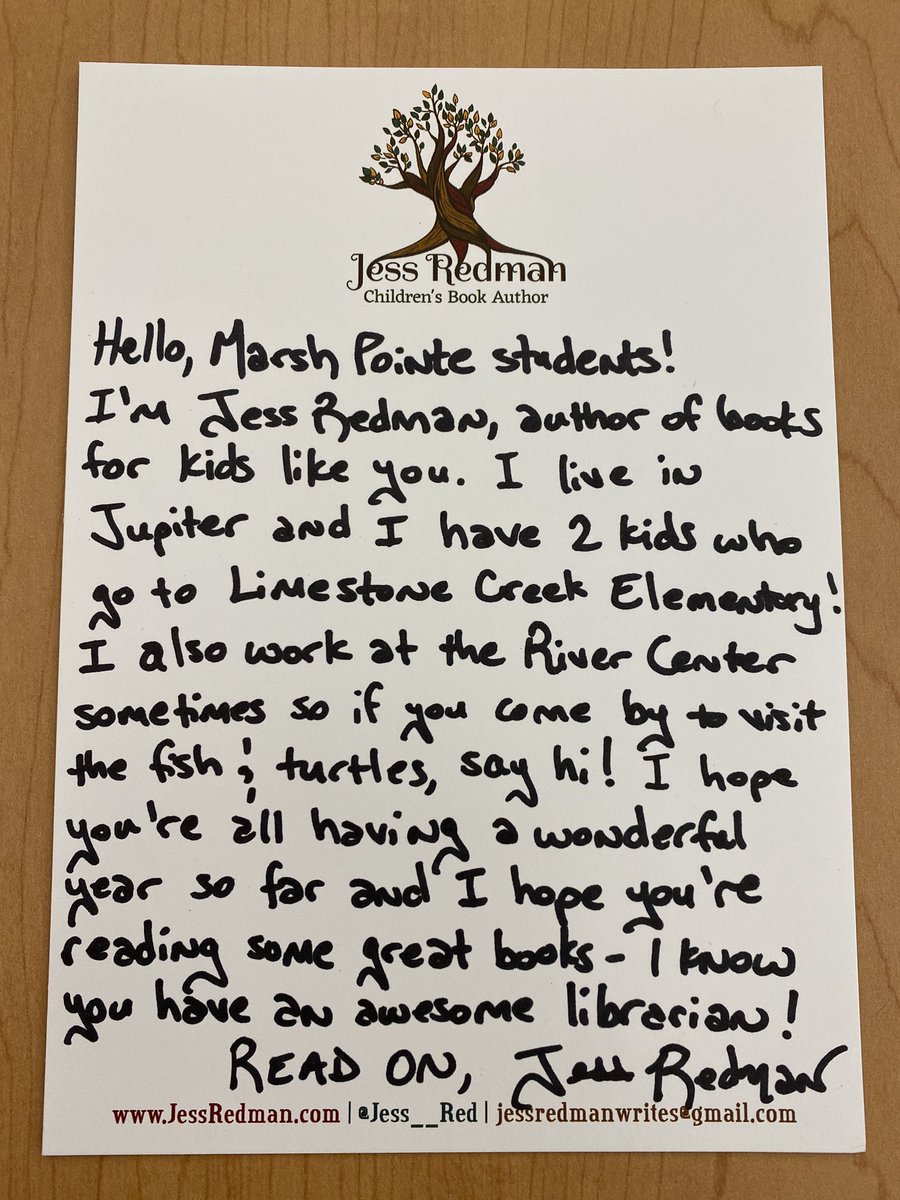 Jess Redman
Children's Book Author
Hello, Marsh Pointe students!
I'm Jess Redman, author of books
for kids like you. I live in
Jupiter and I have 2 kids who
go to Limestone Creek Elementary!
I also work at the River Center
sometimes so if you come by to visit
the fish & turtles, say hi! I hope
you're all having a wonderful
year so far and I hope you're
reading some great books - I know
you have an awesome librarian!
READ ON, Jess Redman
www.JessRedman.com | @Jess__Red | jessredmanwrites@gmail.com